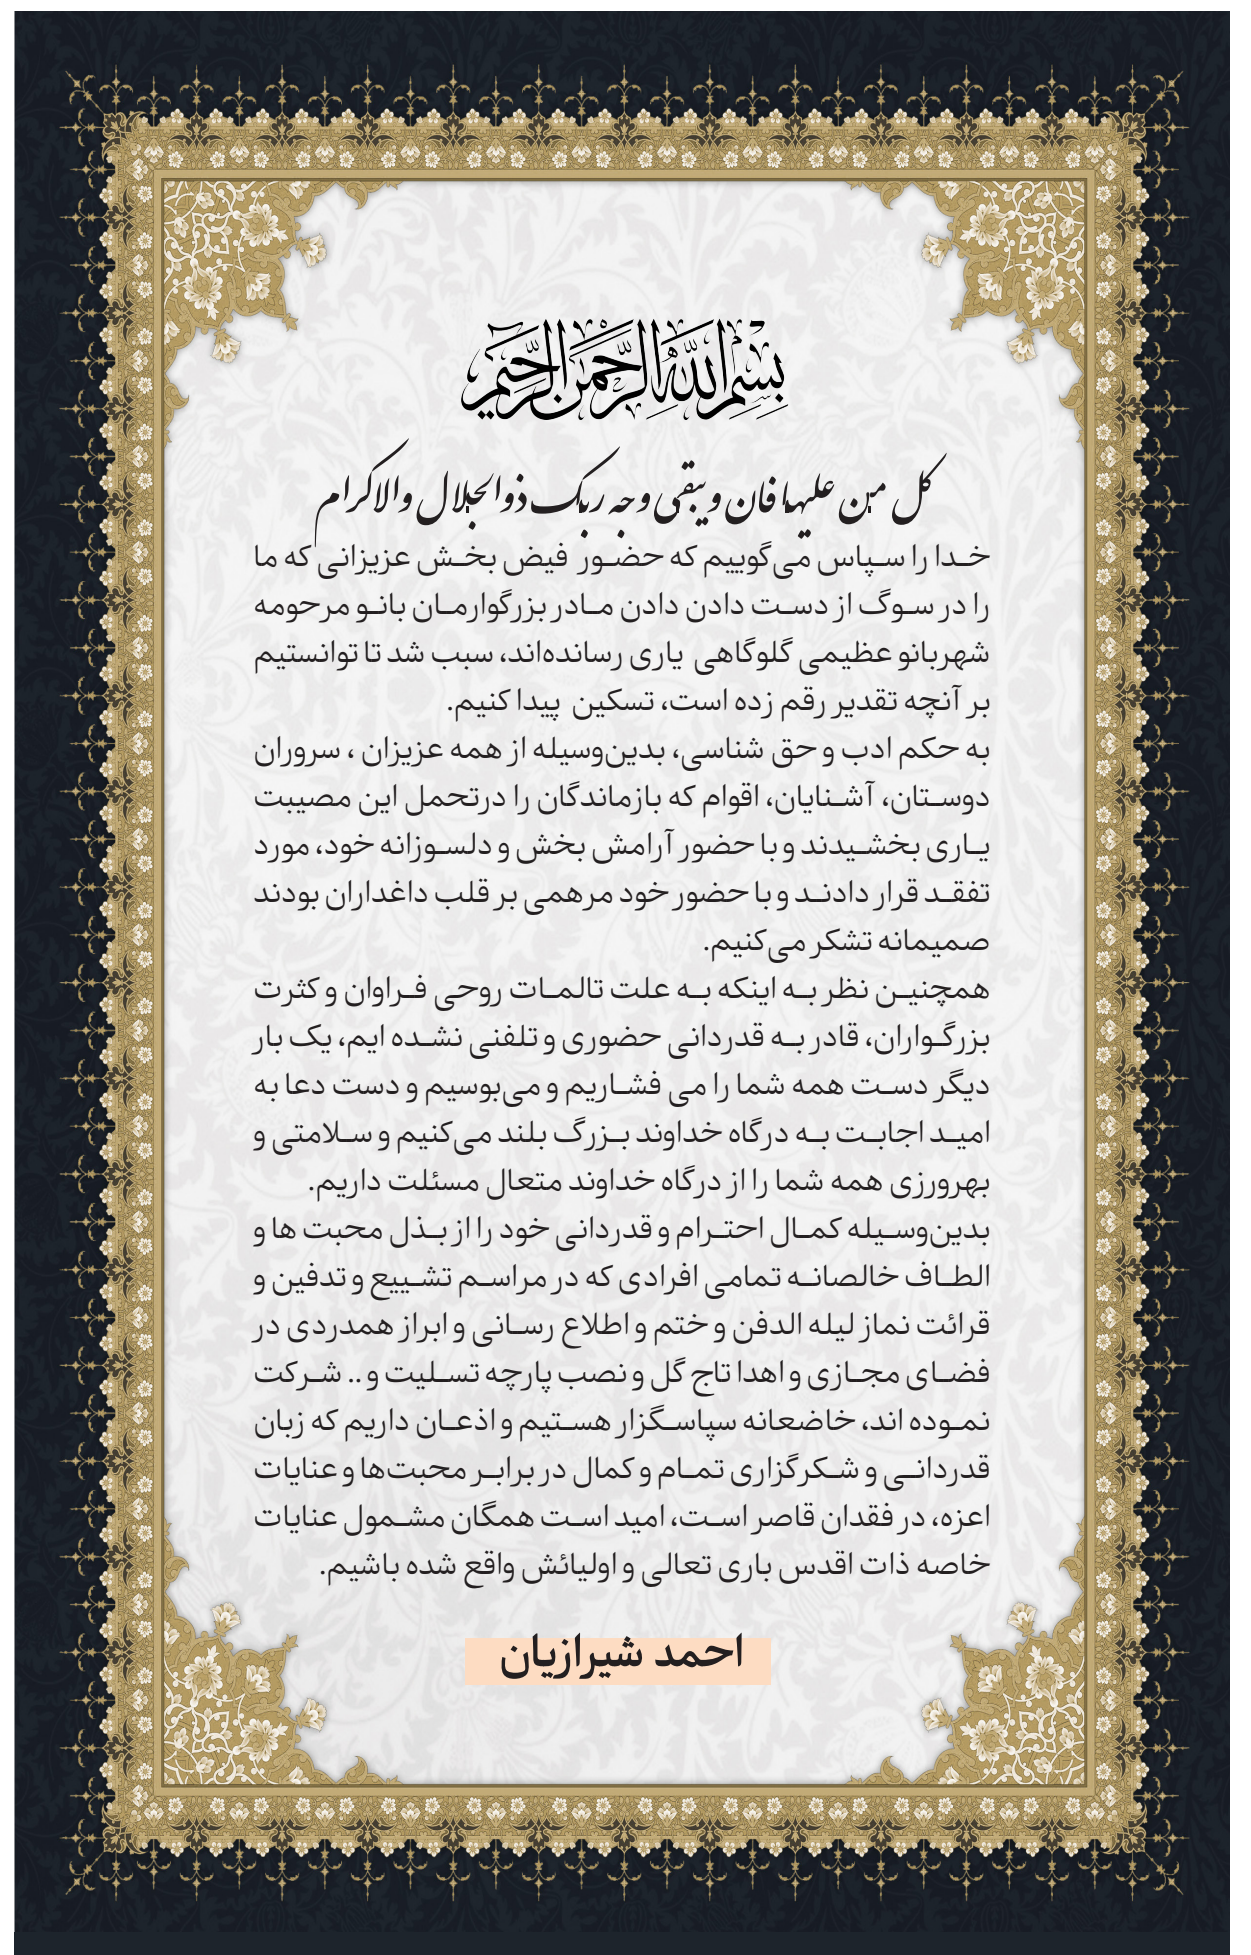 بسم الله الرحمن الرحیم
کل من علیها فان و یبقی وجه ربک ذوالجلال والاکرام
خدا را سپاس می‌گوییم که حضور فیض بخش عزیزانی که ما
را در سوگ از دست دادن دادن مادر بزرگوارمان بانو مرحومه
شهربانو عظیمی گلوگاهی یاری رسانده‌اند، سبب شد تا توانستیم
بر آنچه تقدیر رقم زده است، تسکین پیدا کنیم.
به حکم ادب و حق شناسی، بدین‌وسیله از همه عزیزان ، سروران
دوستان، آشنایان، اقوام که بازماندگان را درتحمل این مصیبت
یاری بخشیدند و با حضور آرامش بخش و دلسوزانه خود، مورد
تفقد قرار دادند و با حضور خود مرهمی بر قلب داغداران بودند
صمیمانه تشکر می‌کنیم.
همچنین نظر به اینکه به علت تالمات روحی فراوان و کثرت
بزرگواران، قادر به قدردانی حضوری و تلفنی نشده ایم، یک بار
دیگر دست همه شما را می فشاریم و می‌بوسیم و دست دعا به
امید اجابت به درگاه خداوند بزرگ بلند می‌کنیم و سلامتی و
بهرورزی همه شما را از درگاه خداوند متعال مسئلت داریم.
بدین‌وسیله کمال احترام و قدردانی خود را از بذل محبت ها و
الطاف خالصانه تمامی افرادی که در مراسم تشییع و تدفین و
قرائت نماز لیله الدفن و ختم و اطلاع رسانی و ابراز همدردی در
فضای مجازی و اهدا تاج گل و نصب پارچه تسلیت و .. شرکت
نموده اند، خاضعانه سپاسگزار هستیم و اذعان داریم که زبان
قدردانی و شکرگزاری تمام و کمال در برابر محبت‌ها و عنایات
اعزه، در فقدان قاصر است، امید است همگان مشمول عنایات
خاصه ذات اقدس باری تعالی و اولیائش واقع شده باشیم.
احمد شیرازیان